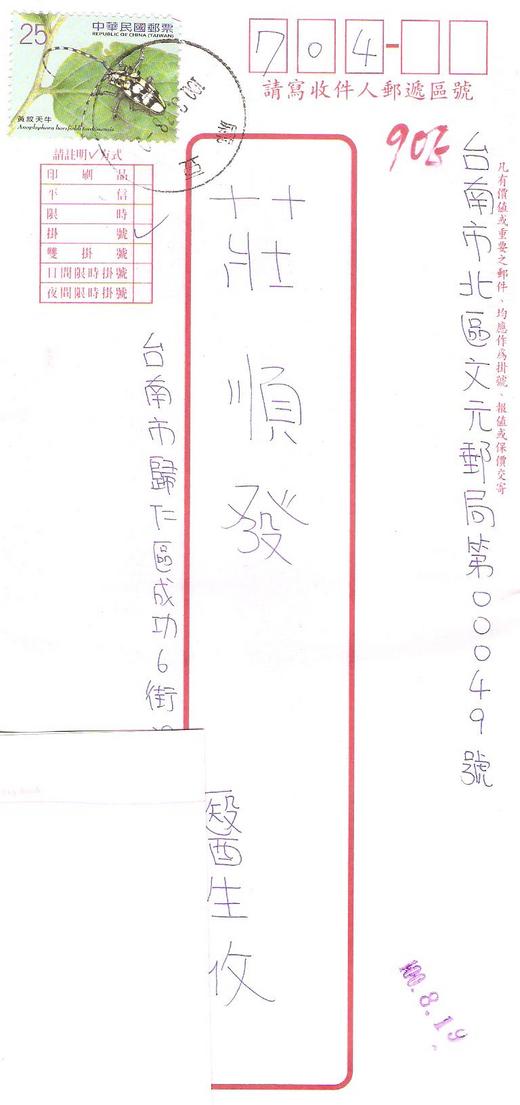 25
中華民國郵票
REPUBLIC OF CHINA (TAIWAN)
黃紋天牛
704
請寫收件人郵遞區號
90E
請註明✓方式
印刷品
平信
限時
掛號 ✓
雙掛號
日間限時掛號
夜間限時掛號
凡有價值或重要之郵件、均應作為掛號、報值或保價交寄
台南市北區文元郵局第00049號
莊順發
醫生收
台南市歸仁區成功6街
100.8.19